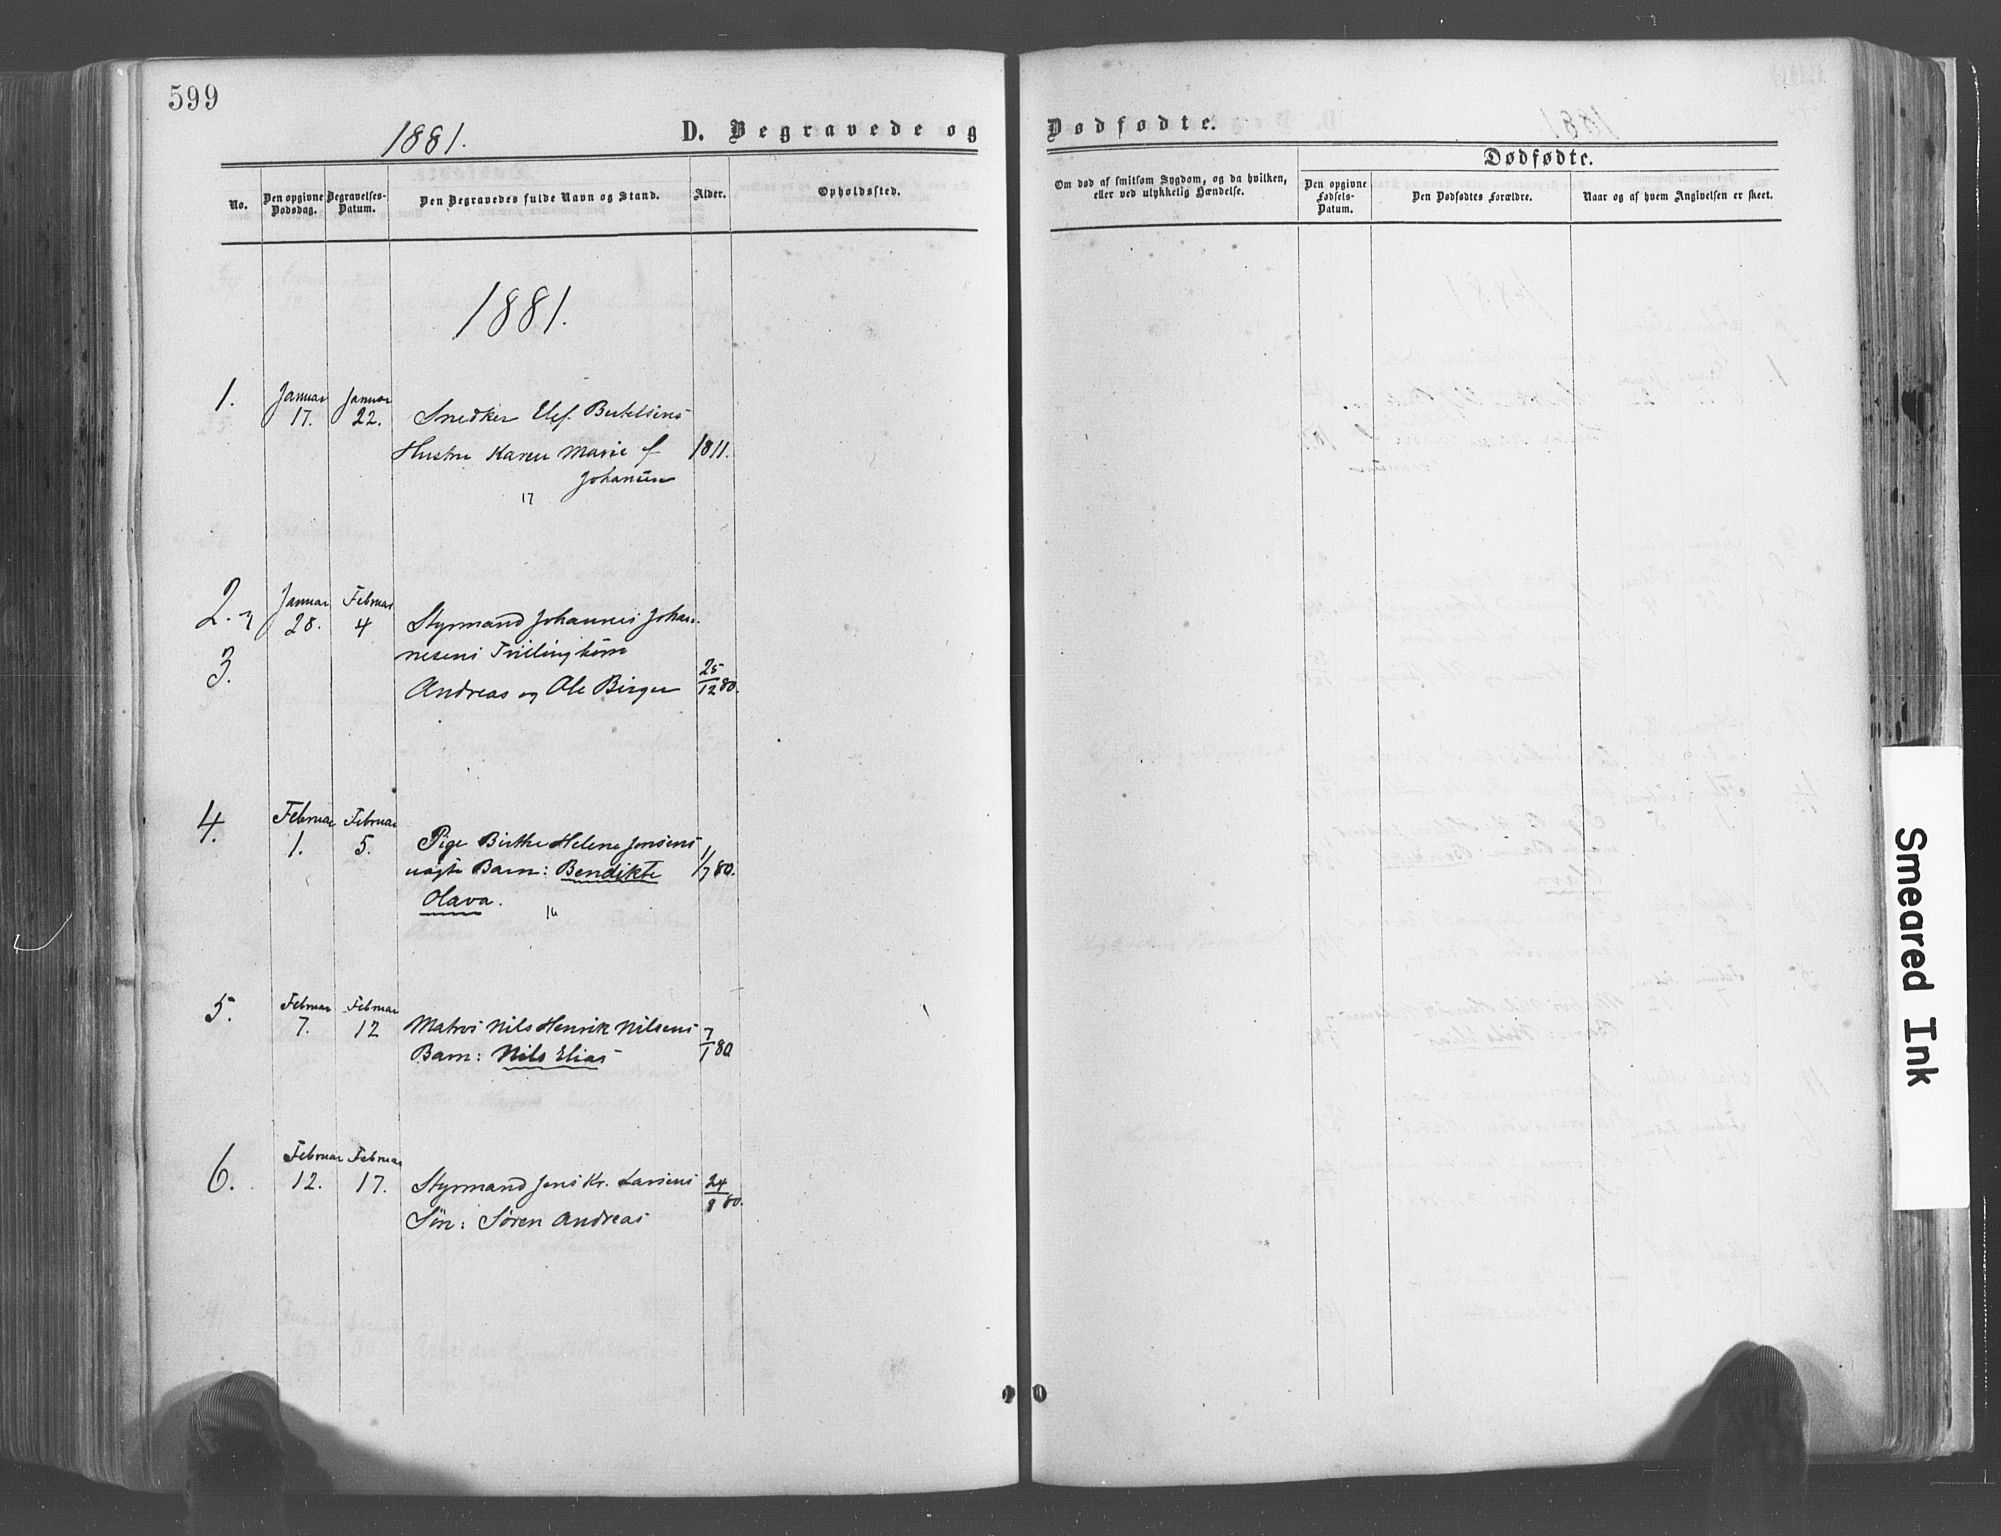 599
1881.
D. Begravede og
Dødfødte.
1881
Dødfødte.
No.
Den opgivne Dødsdag.
Begravelses-Datum.
Den Begravedes fulde Navn og Stand.
Alder.
Opholdssted.
Om død af smitsom Sygdom, og da hvilken,
eller ved ulykkelig Hændelse.
Den opgivne Fødsels-Datum.
Den Dødfødtes Forældre.
Naar og af hvem Angivelsen er skeet.
1881.
1. Januar 17. Januar 22. Snedker Elef Bertelsens
Hustru Karen Marie f 1811.
Johansen
17
2. og Januar 28. Februar 4 Styrmand Johannes Johan-
nesens
3. Andreas og Ole Birger 25/12 80.
4. Februar 1. Februar 5. Pige Birthe Helene Jensens
uægte Barn: Bendikte 1/7 80.
Hava.
5. Februar 7. Februar 12 Matros Nils Henrik Nilsens
Barn: Nils Elias 7/1 80
6. Februar 12. Februar 17. Styrmand Jens Kr. Larsens 24/8 80.
Søn: Søren Andreas
Smeared Ink